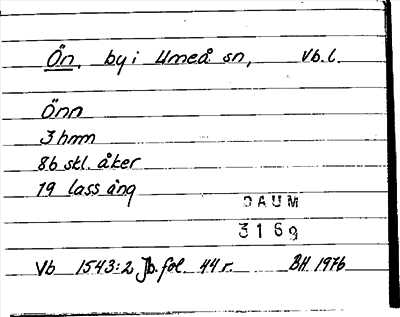 Ön, by i Umeå sn, Vb.l.
Önn
3 hmn
86 skl. åker
19 lass äng
DAUM
3169
Vb 1543:2 Jb.fol. 44 r. BH. 1976